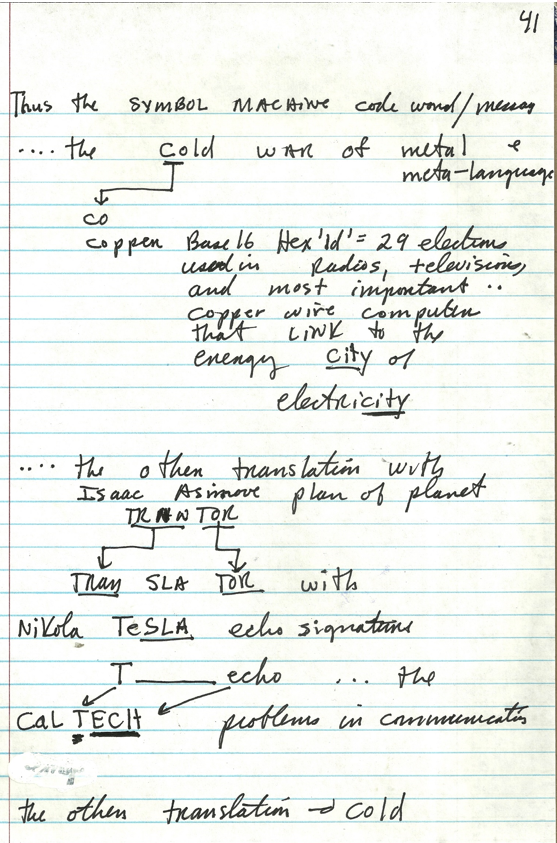 41
Thus the SYMBOL MACHINE code word/messag
.... the Cold WAR of metal &
meta-language
CO
Copper Base 16 Hex '1d' = 29 electrons
used in Radios, televisions,
and most important ..
copper wire computer
that LINK to the
energy city of
electricity
.... the other translation with
Isaac Asimove plan of planet
TRANTOR
Tran SLA TOR with
Nikola TeSLA echo signature
T______echo ... the
Cal TECH problems in communication
the other translation → Cold